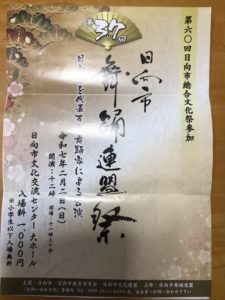 第六〇回日向市総合文化祭参加
第37回
日向市
舞踊連盟祭
令和七年二月二日(日)
開演:十二時 開場:十一時三十分
日向市文化交流センター 大ホール
入場料 一、〇〇〇円
※小学生以下入場無料
主催:日向市
日向市教育委員会
日向市文化連盟
主幹:日向市舞踊連盟